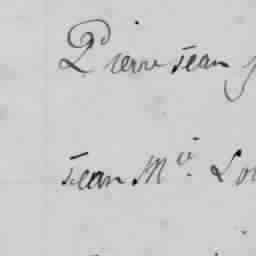 Pierre Jean
Jean Mie. Lo